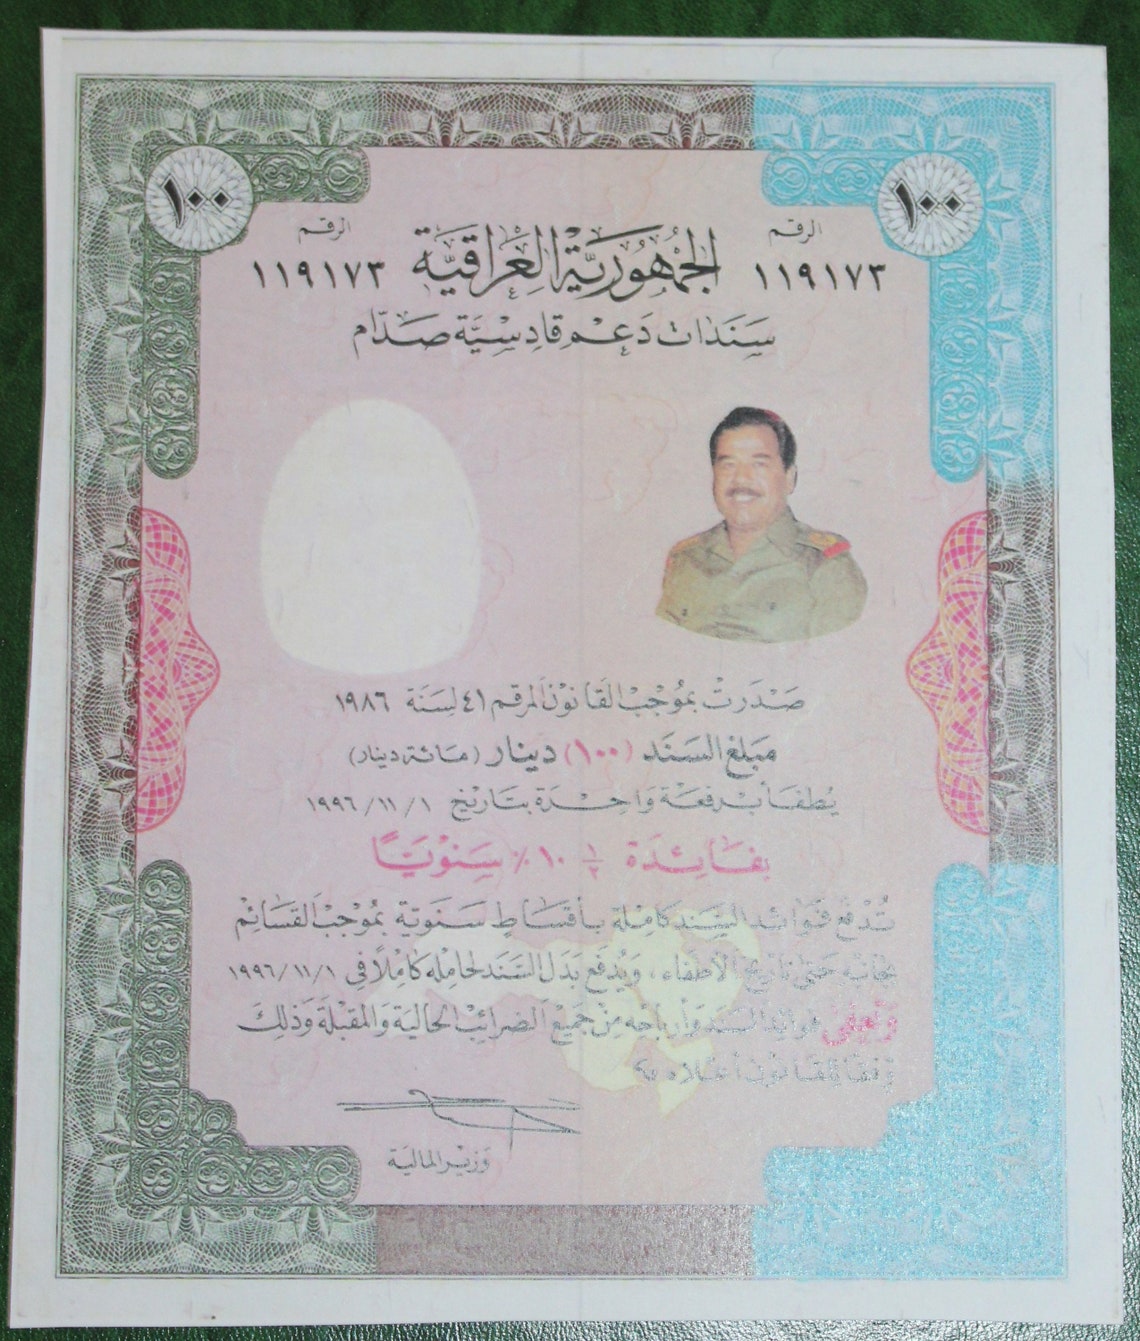 ١٠٠ ١٠٠
الرقم الرقم
١١٩١٧٣ الجمهورية العراقية ١١٩١٧٣
سندات دعم قادسية صدام
صدرت بموجب القانون المرقم ٤١ لسنة ١٩٨٦
مبلغ السند (١٠٠) دينار (مائة دينار)
يطفأ بدفعة واحدة بتاريخ ١/١١/١٩٩٦
بفائدة ١/٢ ١٠٪ سنويًا
تدفع فوائد السند كاملة بأقساط سنوية بموجب القسائم
بجانبه حتى تاريخ الأطفاء، ويدفع بدل السند لحامله كاملاً في ١/١١/١٩٩٦
وتعفى فوائد السند وأرباحه من جميع الضرائب الحالية والمقبلة وذلك
وفقا للقانون أعلاه
وزير المالية